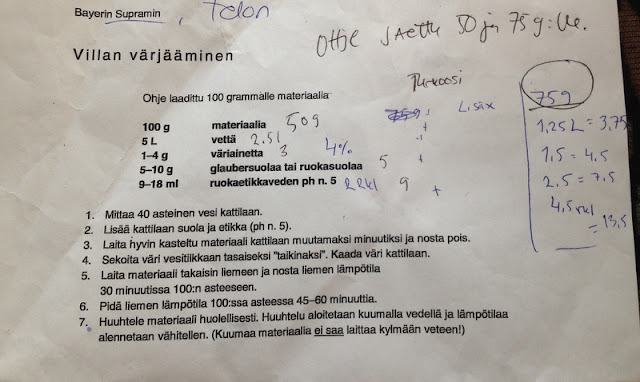 Bayerin Supramin, Telon
Ohje jaettu 50 ja 75 g:lle.
Villan värjääminen
Turkoosi
Ohje laadittu 100 grammalle materiaalia
100 g materiaalia 50g
5 L vettä 2.5l
1–4 g väriainetta 3 4%
5–10 g glaubersuolaa tai ruokasuolaa 5 +
9–18 ml ruokaetikkaveden ph n. 5 2 rkl 9 +
Lisäx
75g
1,25 L = 3,75
1,5 = 4.5
2.5 = 7.5
4,5 rkl
= 13,5
1. Mittaa 40 asteinen vesi kattilaan.
2. Lisää kattilaan suola ja etikka (ph n. 5).
3. Laita hyvin kasteltu materiaali kattilaan muutamaksi minuutiksi ja nosta pois.
4. Sekoita väri vesitilkkaan tasaiseksi "taikinaksi". Kaada väri kattilaan.
5. Laita materiaali takaisin liemeen ja nosta liemen lämpötila
30 minuutissa 100:n asteeseen.
6. Pidä liemen lämpötila 100:ssa asteessa 45–60 minuuttia.
7. Huuhtele materiaali huolellisesti. Huuhtelu aloitetaan kuumalla vedellä ja lämpötilaa
alennetaan vähitellen. (Kuumaa materiaalia ei saa laittaa kylmään veteen!)